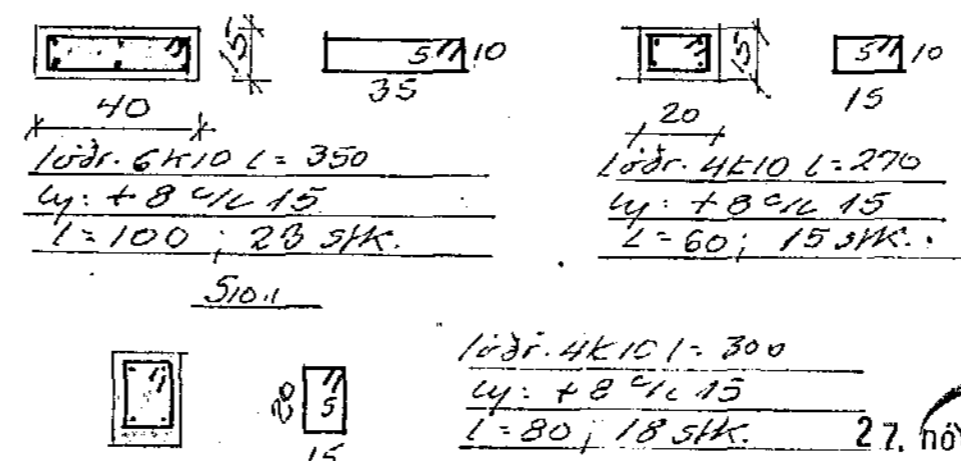 5 10
35
15
40
lóðr. 6K10 l = 350
ly: + 8 c/c 15
l = 100 ; 23 stk.
5 10
15
15
20
lóðr. 4K10 l = 270
ly: + 8 c/c 15
l = 60 ; 15 stk.
S10.1
20 5
15
lóðr. 4K10 l = 300
ly: + 8 c/c 15
l = 80 ; 18 stk.
27. nóv